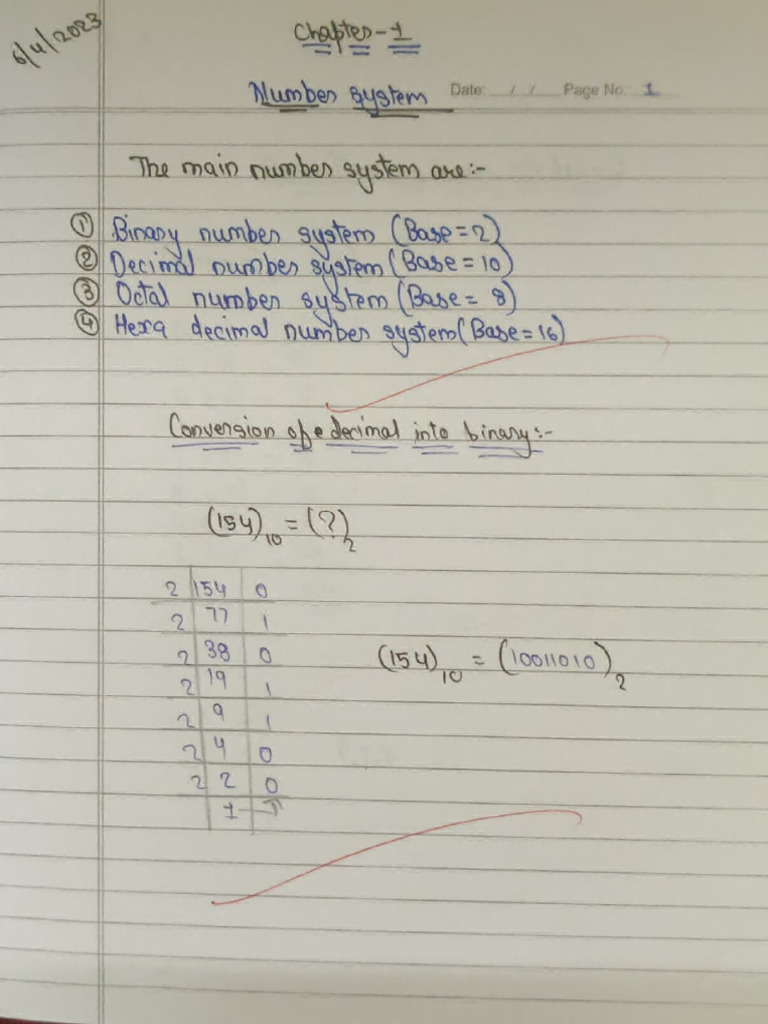 6/4/2023
Chapter-1
Number system
Date: / / Page No.: 1
The main number system are:-
① Binary number system (Base=2)
② Decimal number system (Base=10)
③ Octal number system (Base=8)
④ Hexa decimal number system (Base=16)
Conversion of decimal into binary:-
(154)₁₀ = (?)₂
2 154 0
2 77 1
2 38 0
2 19 1
2 9 1
2 4 0
2 2 0
1
(154)₁₀ = (10011010)₂